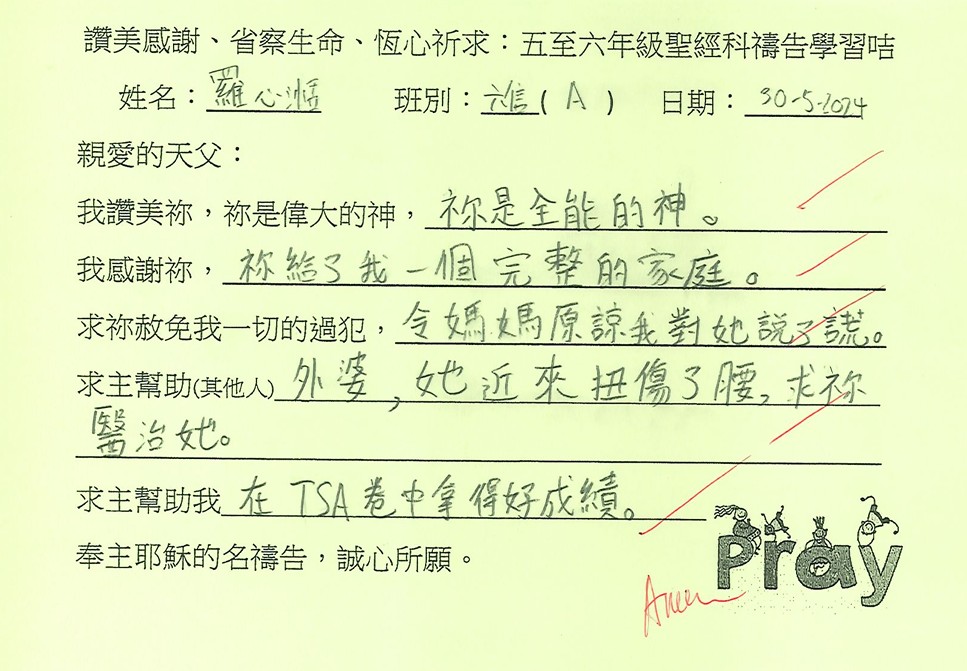 讚美感謝、省察生命、恆心祈求：五至六年級聖經科禱告學習咭
姓名：羅心 班別：進(A) 日期：30-5-2024
親愛的天父：
我讚美祢，祢是偉大的神，祢是全能的神。
我感謝祢，祢給了我一個完整的家庭。
求祢赦免我一切的過犯，令媽媽原諒我對她說了謊。
求主幫助(其他人)外婆，她近來扭傷了腰，求祢
醫治她。
求主幫助我在TSA卷中拿得好成績。
奉主耶穌的名禱告，誠心所願。
Pray
Amen